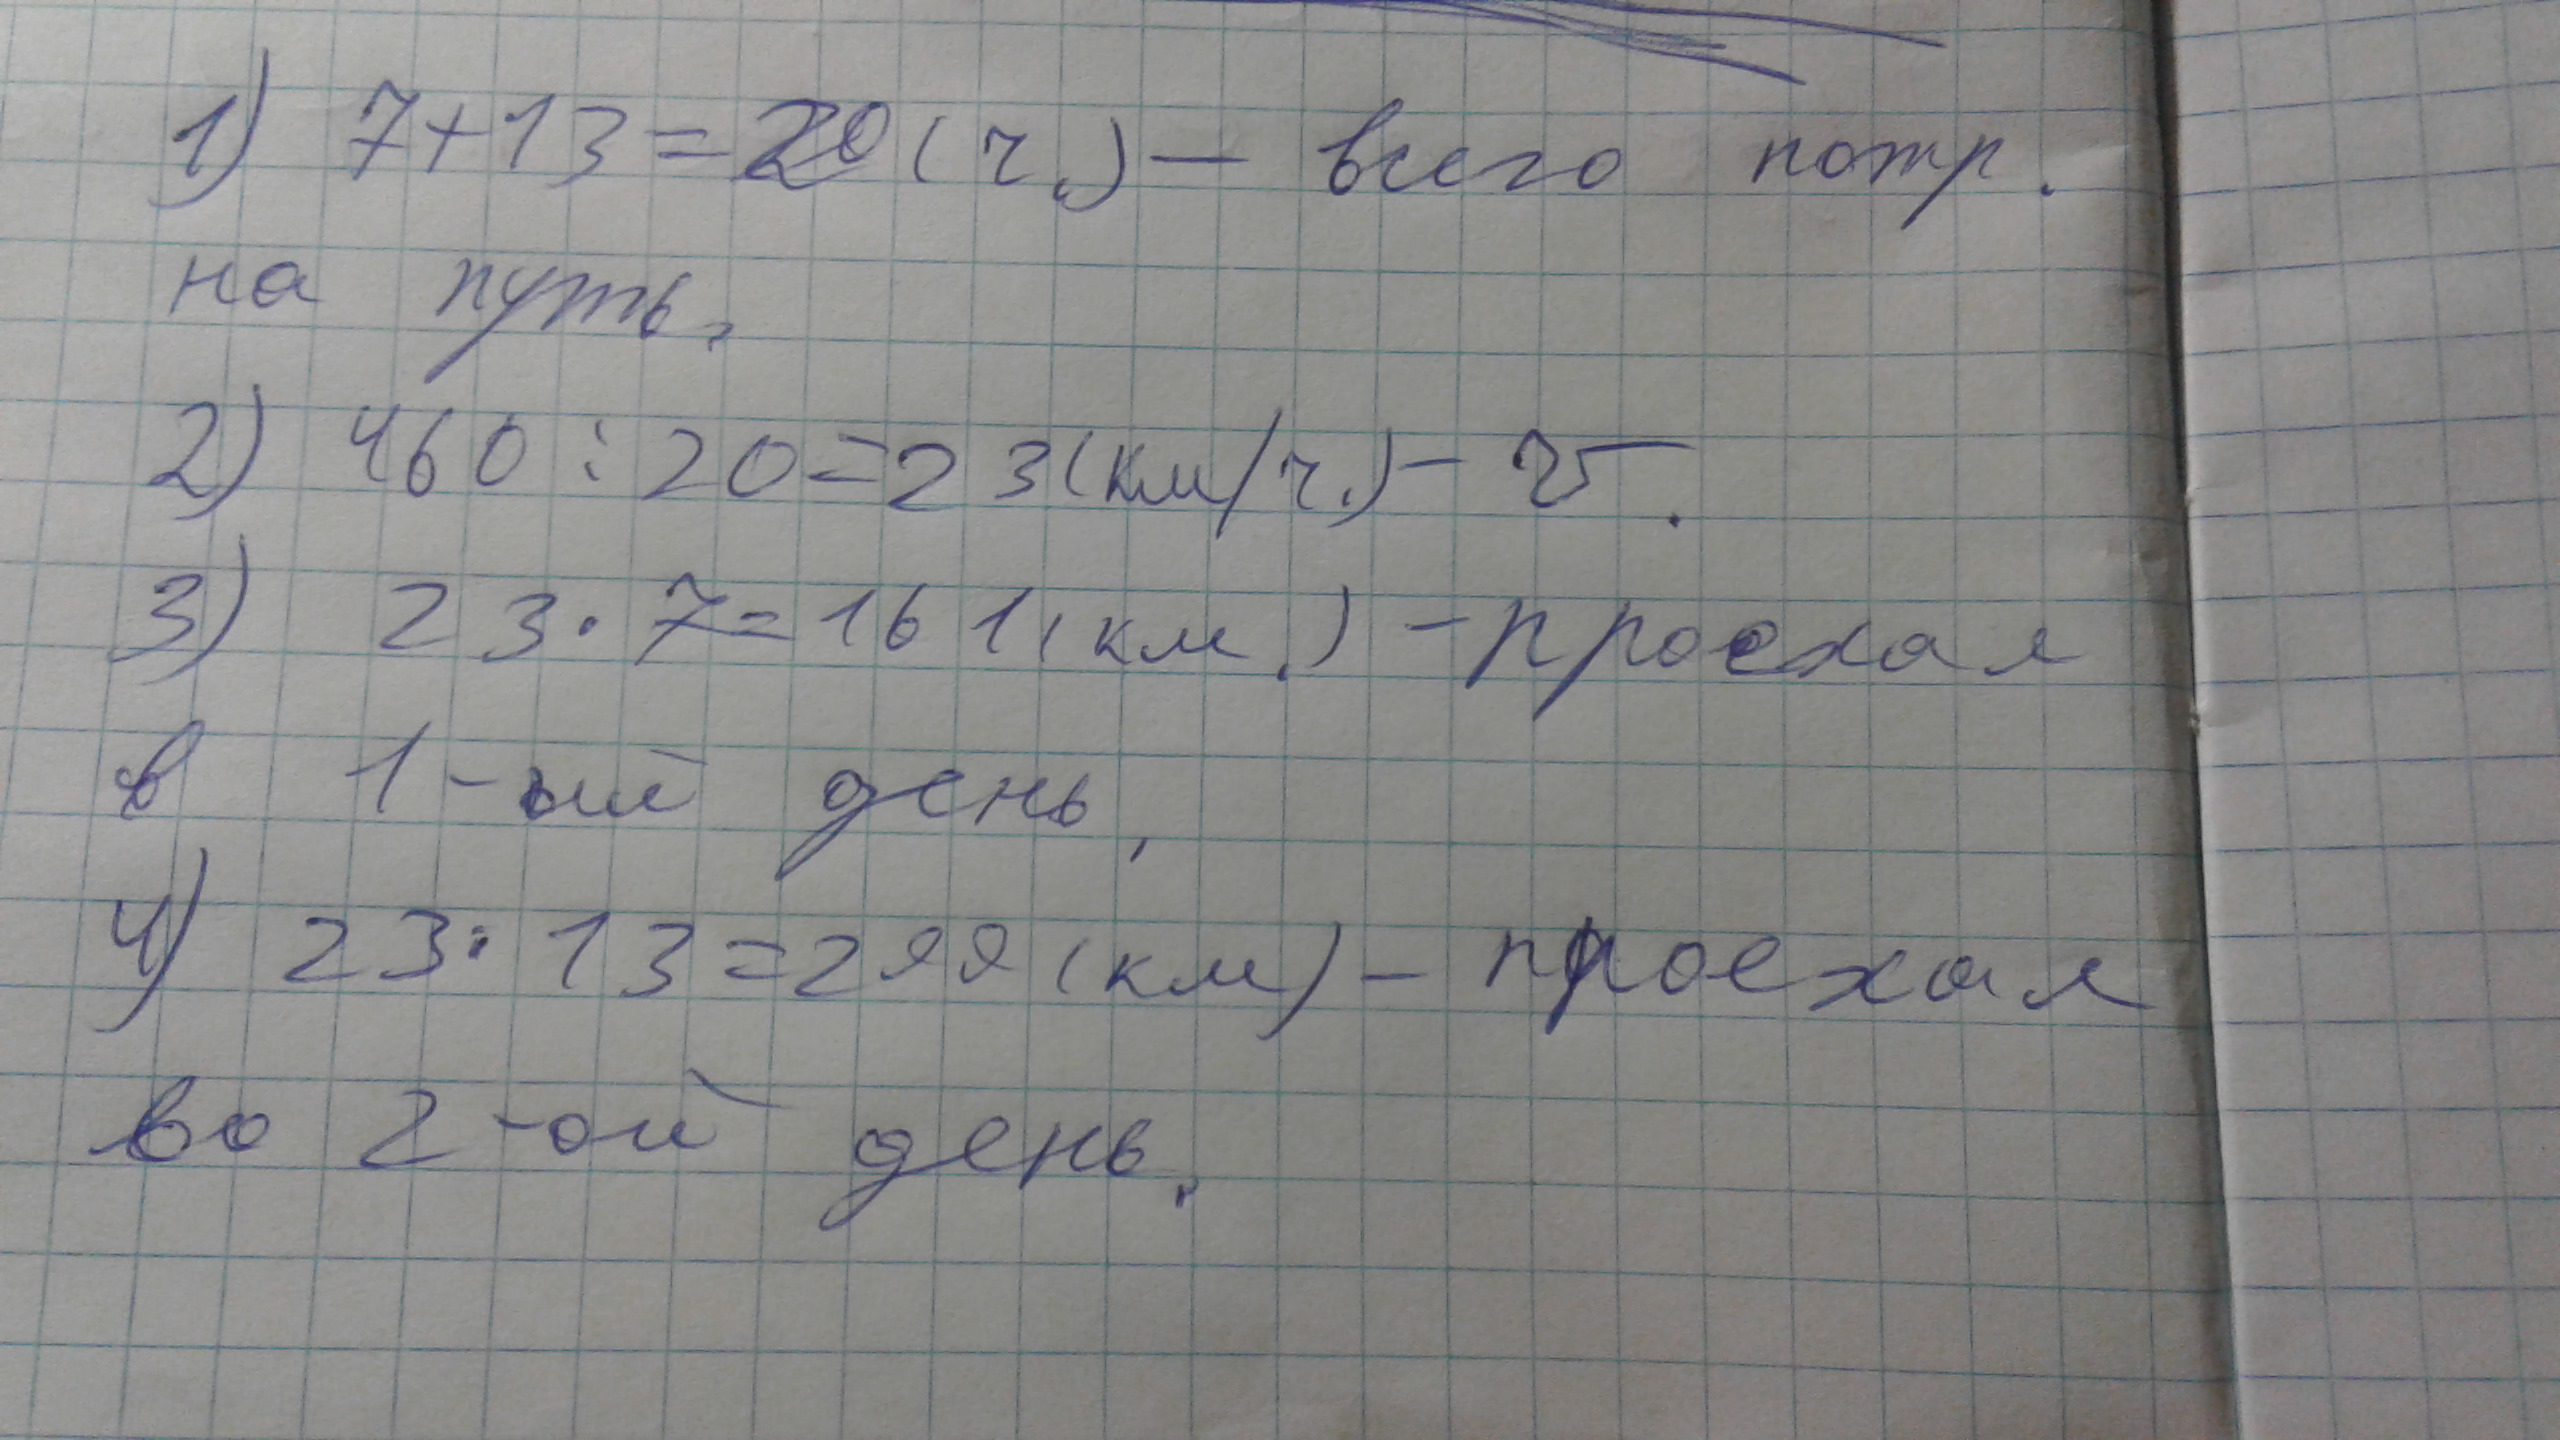 1) 7+13=20(ч.) — всего потр.
на путь.
2) 460:20=23(км/ч.) – V.
3) 23·7=161(км.) – проехал
в 1-ый день.
4) 23·13=299(км) – проехал
во 2-ой день.